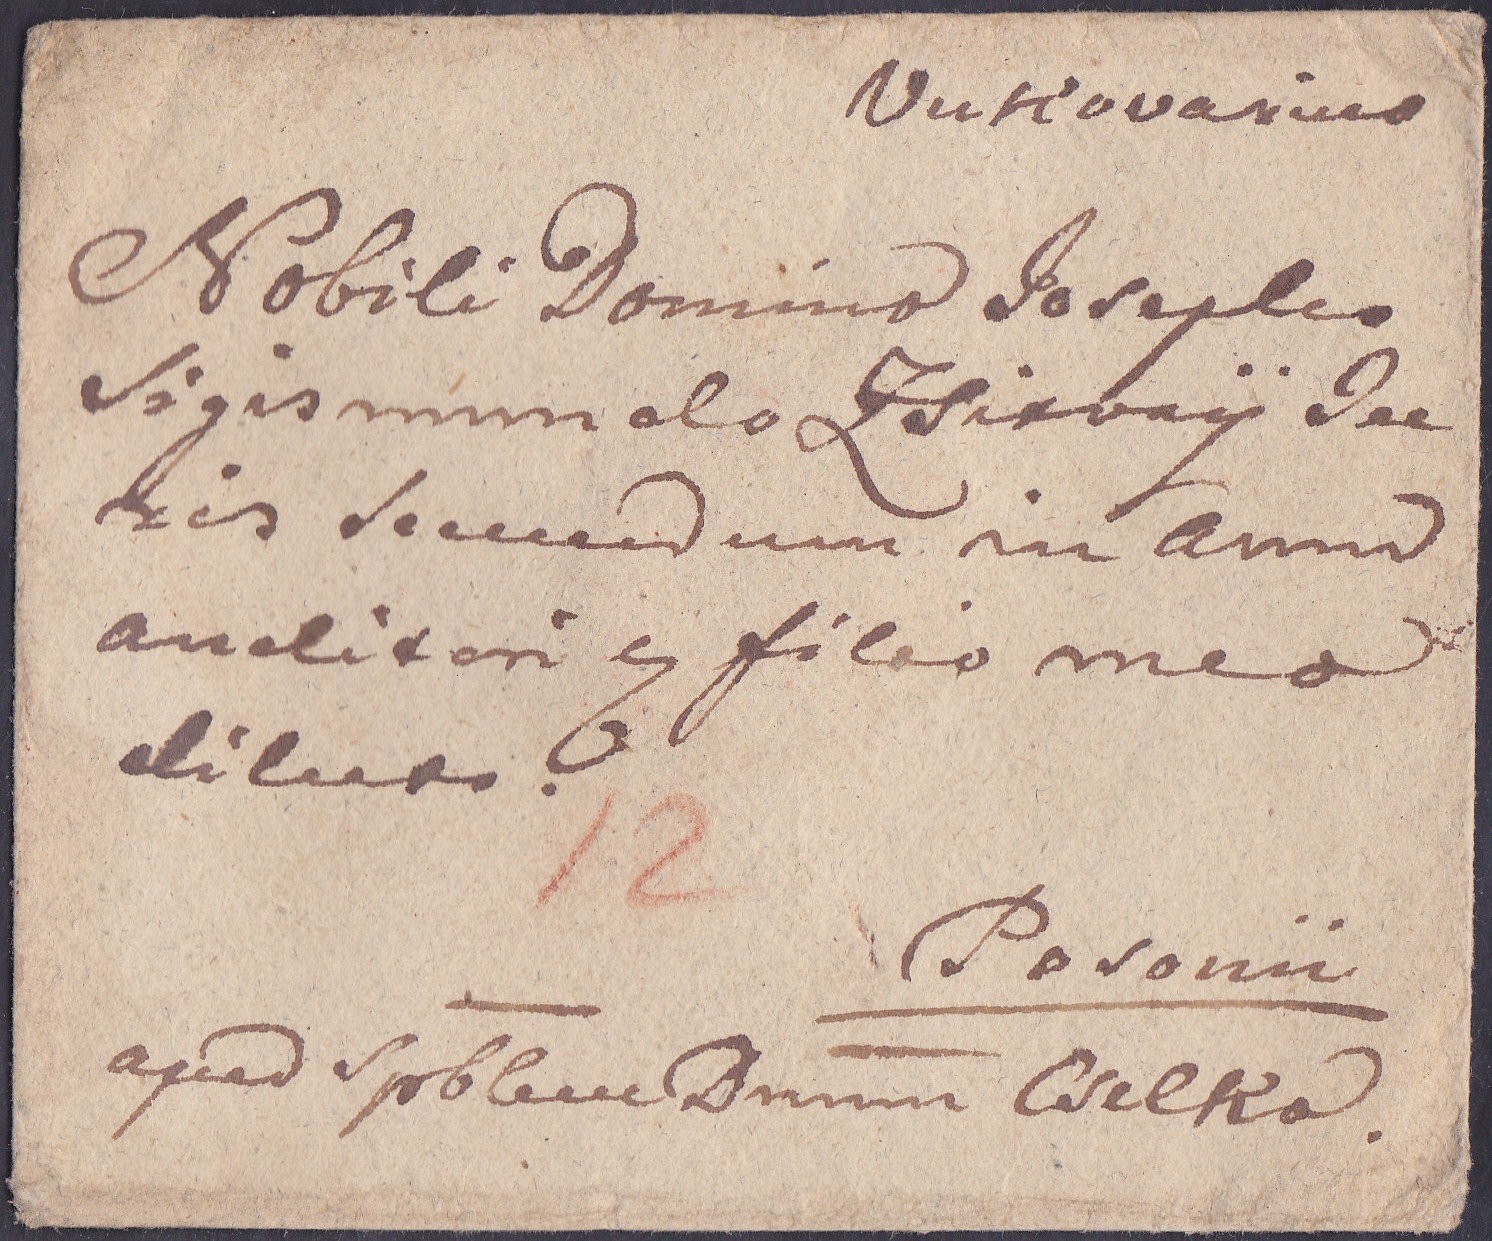 Vukovarino
Nobili Domino Josepho
Sigismundo Zsitvaÿ Ju
ris secundum in annum
auditori et filio meo
dilecto.
12
Posonii
apud spblem Dnum Cselko.